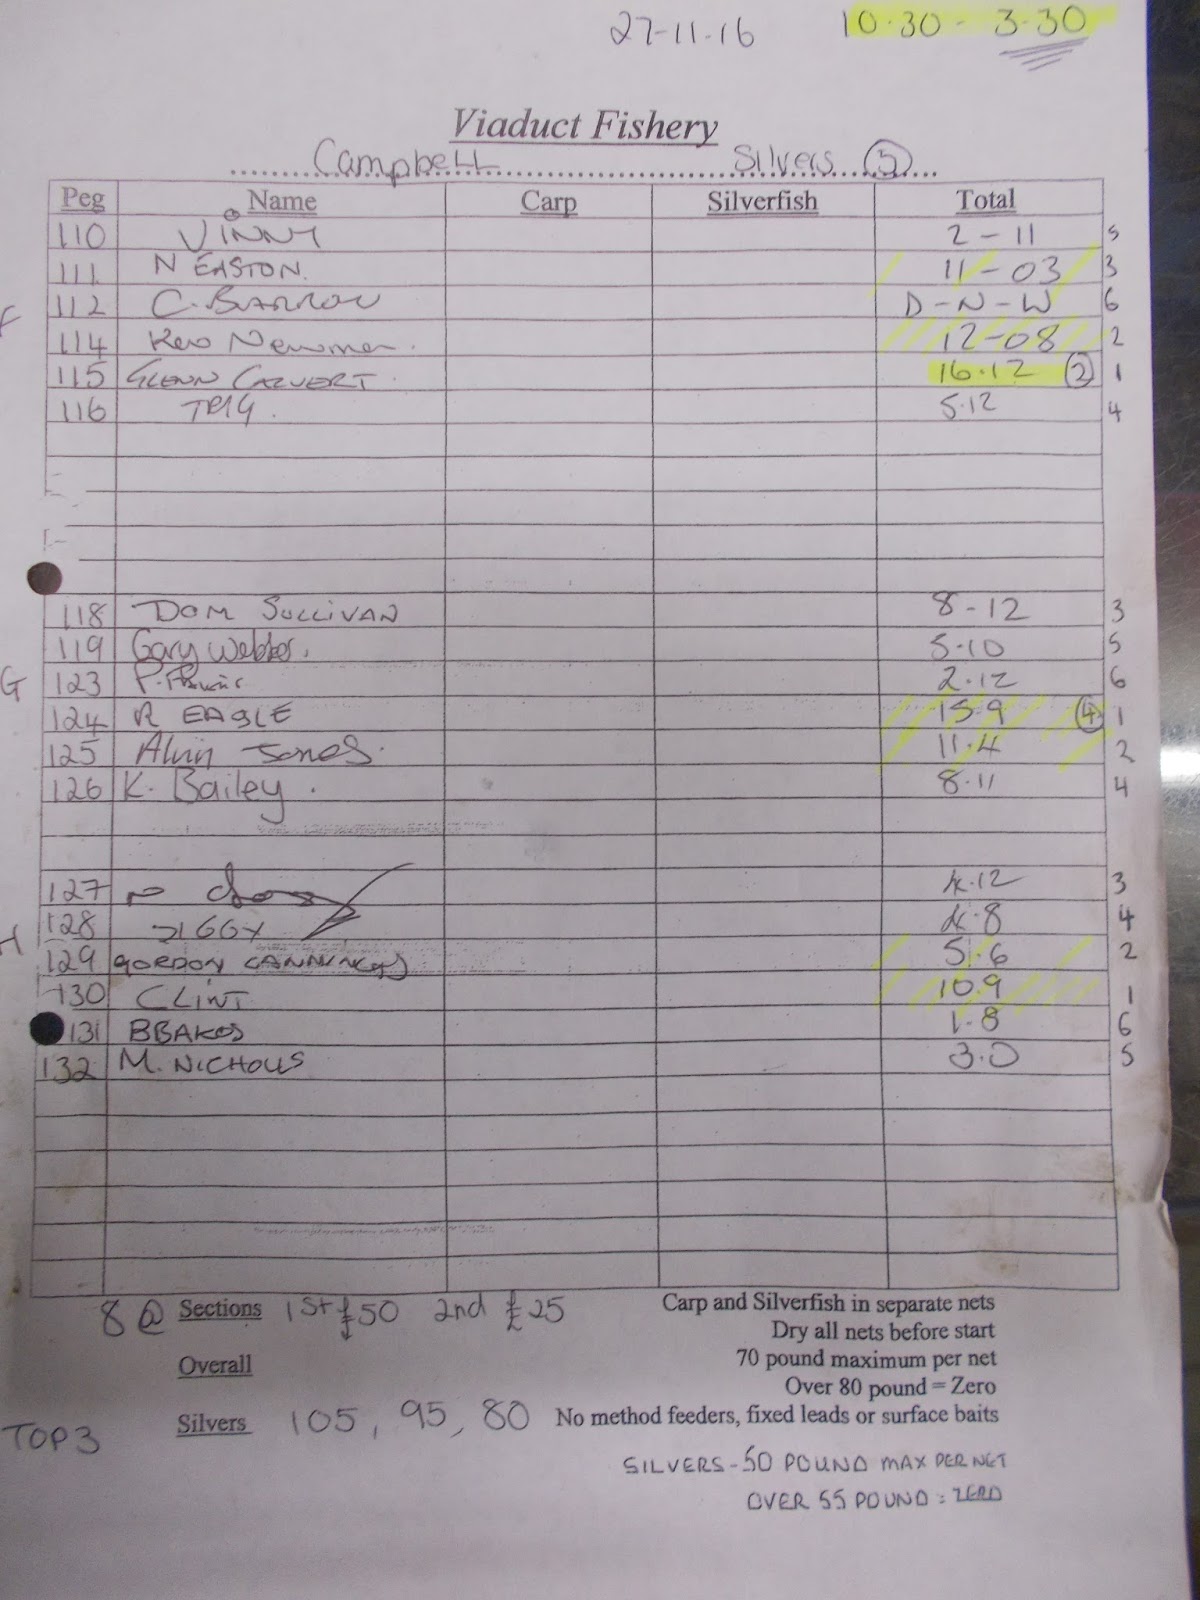 27-11-16 10.30 - 3.30
Viaduct Fishery
Campbell Silvers (5)
Peg Name Carp Silverfish Total
110 VINNY 2-11 5
111 N EASTON. 11-03 3
112 C. BARROW D-N-W 6
F
114 Kev Newman. 12-08 2
115 GLENN CALVERT. 16.12 (2) 1
116 TRIG. 5.12 4
118 DOM SULLIVAN 8-12 3
119 Gary Webber. 5.10 5
G 123 2.12 6
124 R EAGLE 15.9 (4) 1
125 Alvin Jones. 11.4 2
126 K. Bailey. 8.11 4
127 4.12 3
128 ZIGGY 4.8 4
H
129 GORDON CANNINGS 5.6 2
130 CLINT 10.9 1
131 1.8 6
132 M. NICHOLLS 3.0 5
8 @ Sections 1st £50 2nd £25 Carp and Silverfish in separate nets
Dry all nets before start
Overall 70 pound maximum per net
Over 80 pound = Zero
TOP 3 Silvers 105, 95, 80 No method feeders, fixed leads or surface baits
SILVERS - 50 POUND MAX PER NET
OVER 55 POUND = ZERO